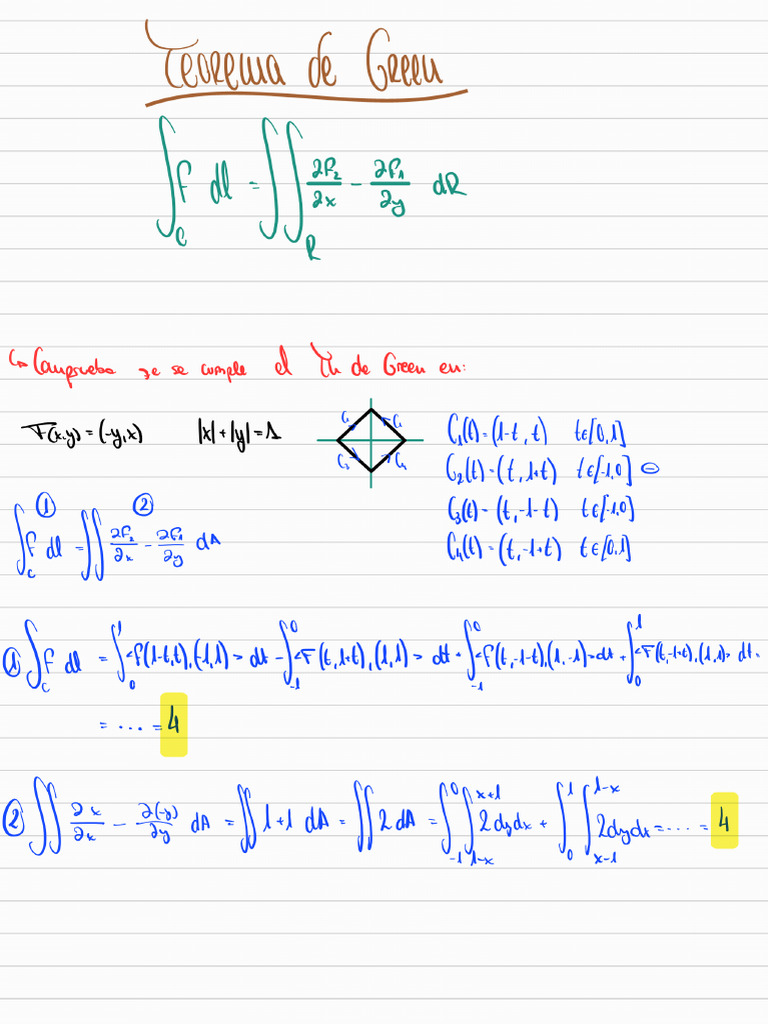 Teorema de Green
∫_C F dl = ∬_R ∂F₂/∂x − ∂F₁/∂y dR
↳ Comprueba qe se cumple el Th de Green en:
F(x,y) = (-y,x) |x|+|y|=1
C₁ C₁ C₃ C₄
C₁(t) = (1-t, t) t∈[0,1]
C₂(t) = (t, 1+t) t∈[-1,0] ⊖
C₃(t) = (t, -1-t) t∈[-1,0]
C₄(t) = (t, -1+t) t∈[0,1]
① ②
∫_C F dl = ∬ ∂F₂/∂x − ∂F₁/∂y dA
① ∫_C F dl = ∫₀¹ <F(1-t,t),(-1,1)> dt − ∫₋₁⁰ <F(t,1+t),(1,1)> dt + ∫₋₁⁰ <F(t,-1-t),(1,-1)> dt + ∫₀¹ <F(t,-1+t),(1,1)> dt =
= ... = 4
② ∬ ∂x/∂x − ∂(-y)/∂y dA = ∬ 1+1 dA = ∬ 2 dA = ∫₋₁⁰ ∫_{-1-x}^{x+1} 2dydx + ∫₀¹ ∫_{x-1}^{1-x} 2dydx = .... = 4